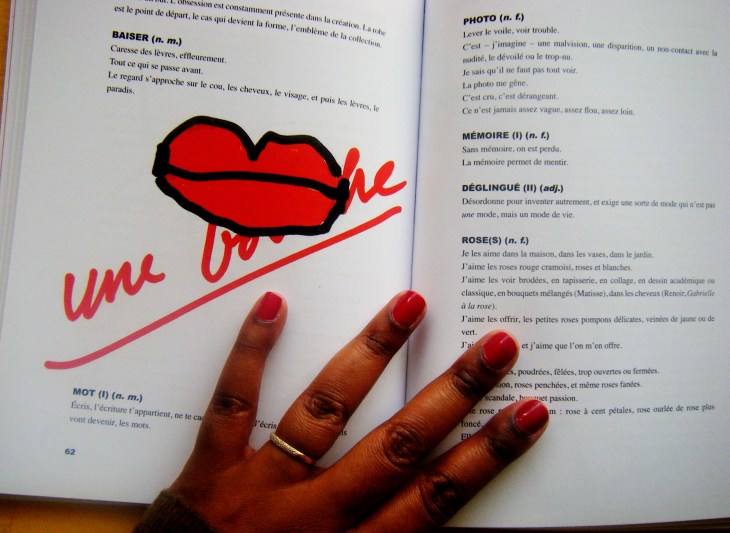 L'obsession est constamment présente dans la création. La robe
est le point de départ, le cas qui devient la forme, l'emblème de la collection.
BAISER (n. m.)
Caresse des lèvres, effleurement.
Tout ce qui se passe avant.
Le regard s'approche sur le cou, les cheveux, le visage, et puis les lèvres, le
paradis.
une bouche
MOT (I) (n. m.)
Écris, l'écriture t'appartient, ne te l'écris
vont devenir, les mots.
62
PHOTO (n. f.)
Lever le voile, voir trouble.
C'est – j'imagine – une malvision, une disparition, un non-contact avec la
nudité, le dévoilé ou le trop-nu.
Je sais qu'il ne faut pas tout voir.
La photo me gêne.
C'est cru, c'est dérangeant.
Ce n'est jamais assez vague, assez flou, assez loin.
MÉMOIRE (I) (n. f.)
Sans mémoire, on est perdu.
La mémoire permet de mentir.
DÉGLINGUÉ (II) (adj.)
Désordonne pour inventer autrement, et exige une sorte de mode qui n'est pas
une mode, mais un mode de vie.
ROSE(S) (n. f.)
Je les aime dans la maison, dans les vases, dans le jardin.
J'aime les roses rouge cramoisi, roses et blanches.
J'aime les voir brodées, en tapisserie, en collage, en dessin académique ou
classique, en bouquets mélangés (Matisse), dans les cheveux (Renoir, Gabrielle
à la rose).
J'aime les offrir, les petites roses pompons délicates, veinées de jaune ou de
vert.
et j'aime que l'on m'en offre.
poudrées, fêlées, trop ouvertes ou fermées.
roses penchées, et même roses fanées.
scandale, passion.
rose : rose à cent pétales, rose ourlée de rose plus
foncé.